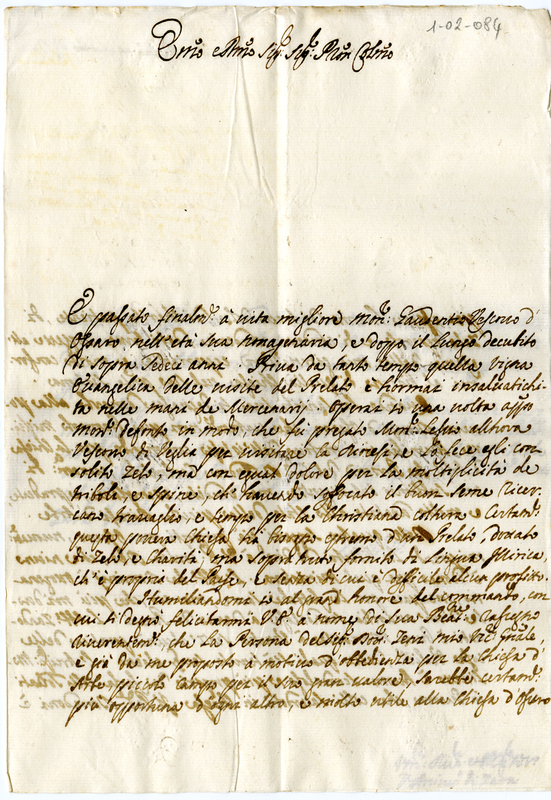 1-02-084
Emo e Rmo Sig.r Sig.r Pron Colmo
È passato finalm.te à vita migliore Mons.r Gaudentio Vescovo d'
Ossaro nell'età sua nonagenaria, e doppo il lungo decubito
di sopra sedici anni. Priva da tanto tempo quella vigna
Evangelica delle visite del Prelato è hormai insalvatichi-
ta nelle mani de Mercenarij. Operai io una volta app.o
Mons.r defonto in modo, che fu pregato Mons.r allhora
Vescovo di Veglia per visitare la Diocesi, e lo fece egli con
solito zelo, ma con egual dolore per la moltiplicità de
triboli, e spine, ch'havendo soffocato il buon seme ricer-
cano travaglio, e tempo per la Christiana coltura. Certam.te
questa povera Chiesa hà bisogno estremo d'un Prelato, dottato
di zelo, e Charità, ma sopra tutto fornito di lingua Illirica,
ch'è propria del Paese, e senza di cui è difficile alcun profitto.
Humiliandomi io al grand'honore del commando, con
cui si degnò felicitarmi V.E. à nome di Sua Beat.ne rassegno
riverentem.te, che la Persona del Sig.r mio Vic.o g̃nale,
e già da me proposto à motivo d'obedienza per la Chiesa d'
Arbe, piccolo campo per il suo gran valore, sarebbe certam.te
più opportuna d'ogni altro, e molto utile alla Chiesa d'Ossaro